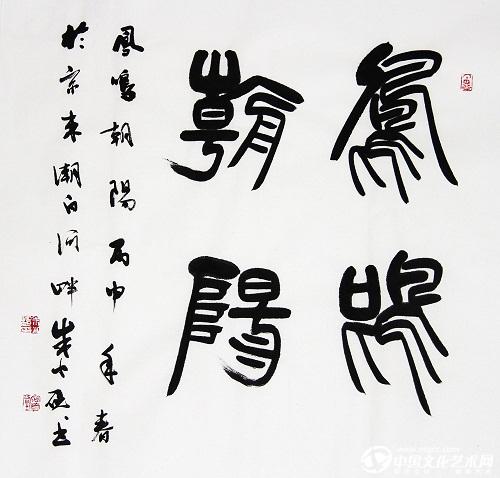 鳳鳴
朝陽
鳳鳴朝陽丙申年春
於京東潮白河畔
中国文化艺术网